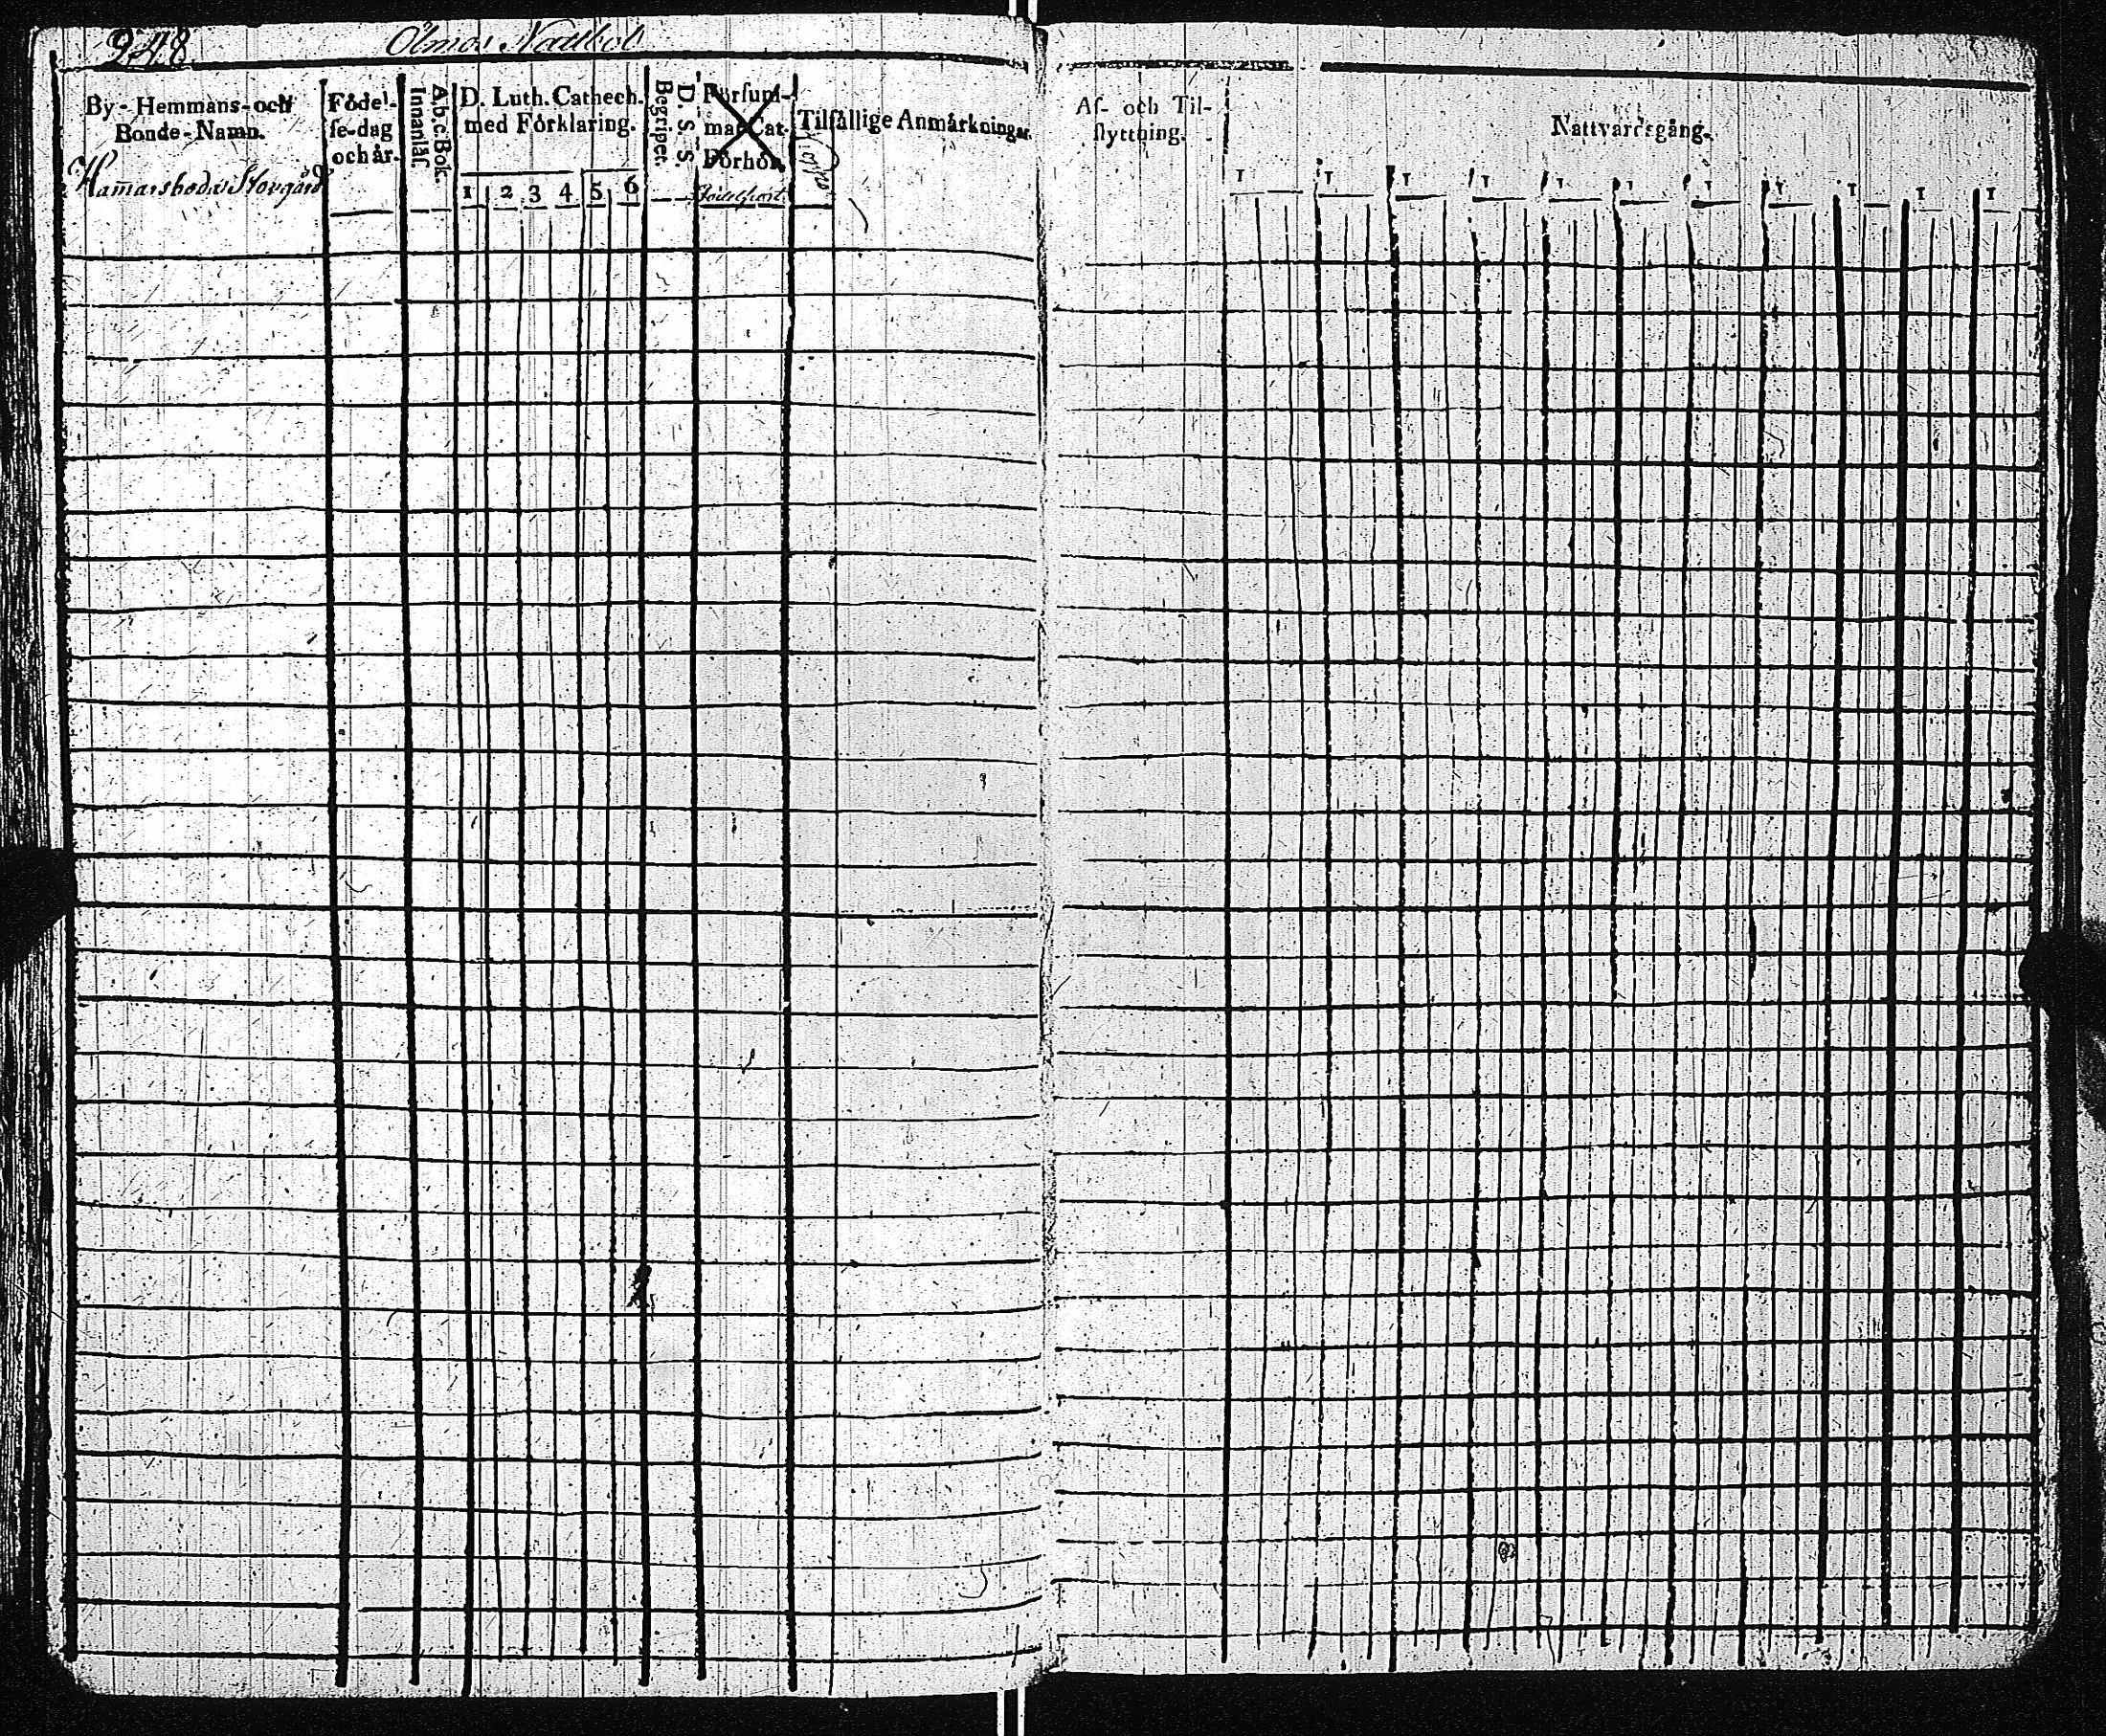 948 Ölmos Nattkol
By- Hemmans- och
Bonde-Namn.
Födel-
se-dag
och år.
A.b.c.Bok.
Innanläs.
D. Luth. Cathech.
med Förklaring.
1 2 3 4 5 6
D. S. S.
Begripet.
Försum-
mat Cat.
Förhör.
Födelseort
Koppor
Tilfällige Anmärkningar.
Hamarsboda Storgård
Af- och Til-
flyttning.
Nattvardsgång.
T T T T T T T T T T T